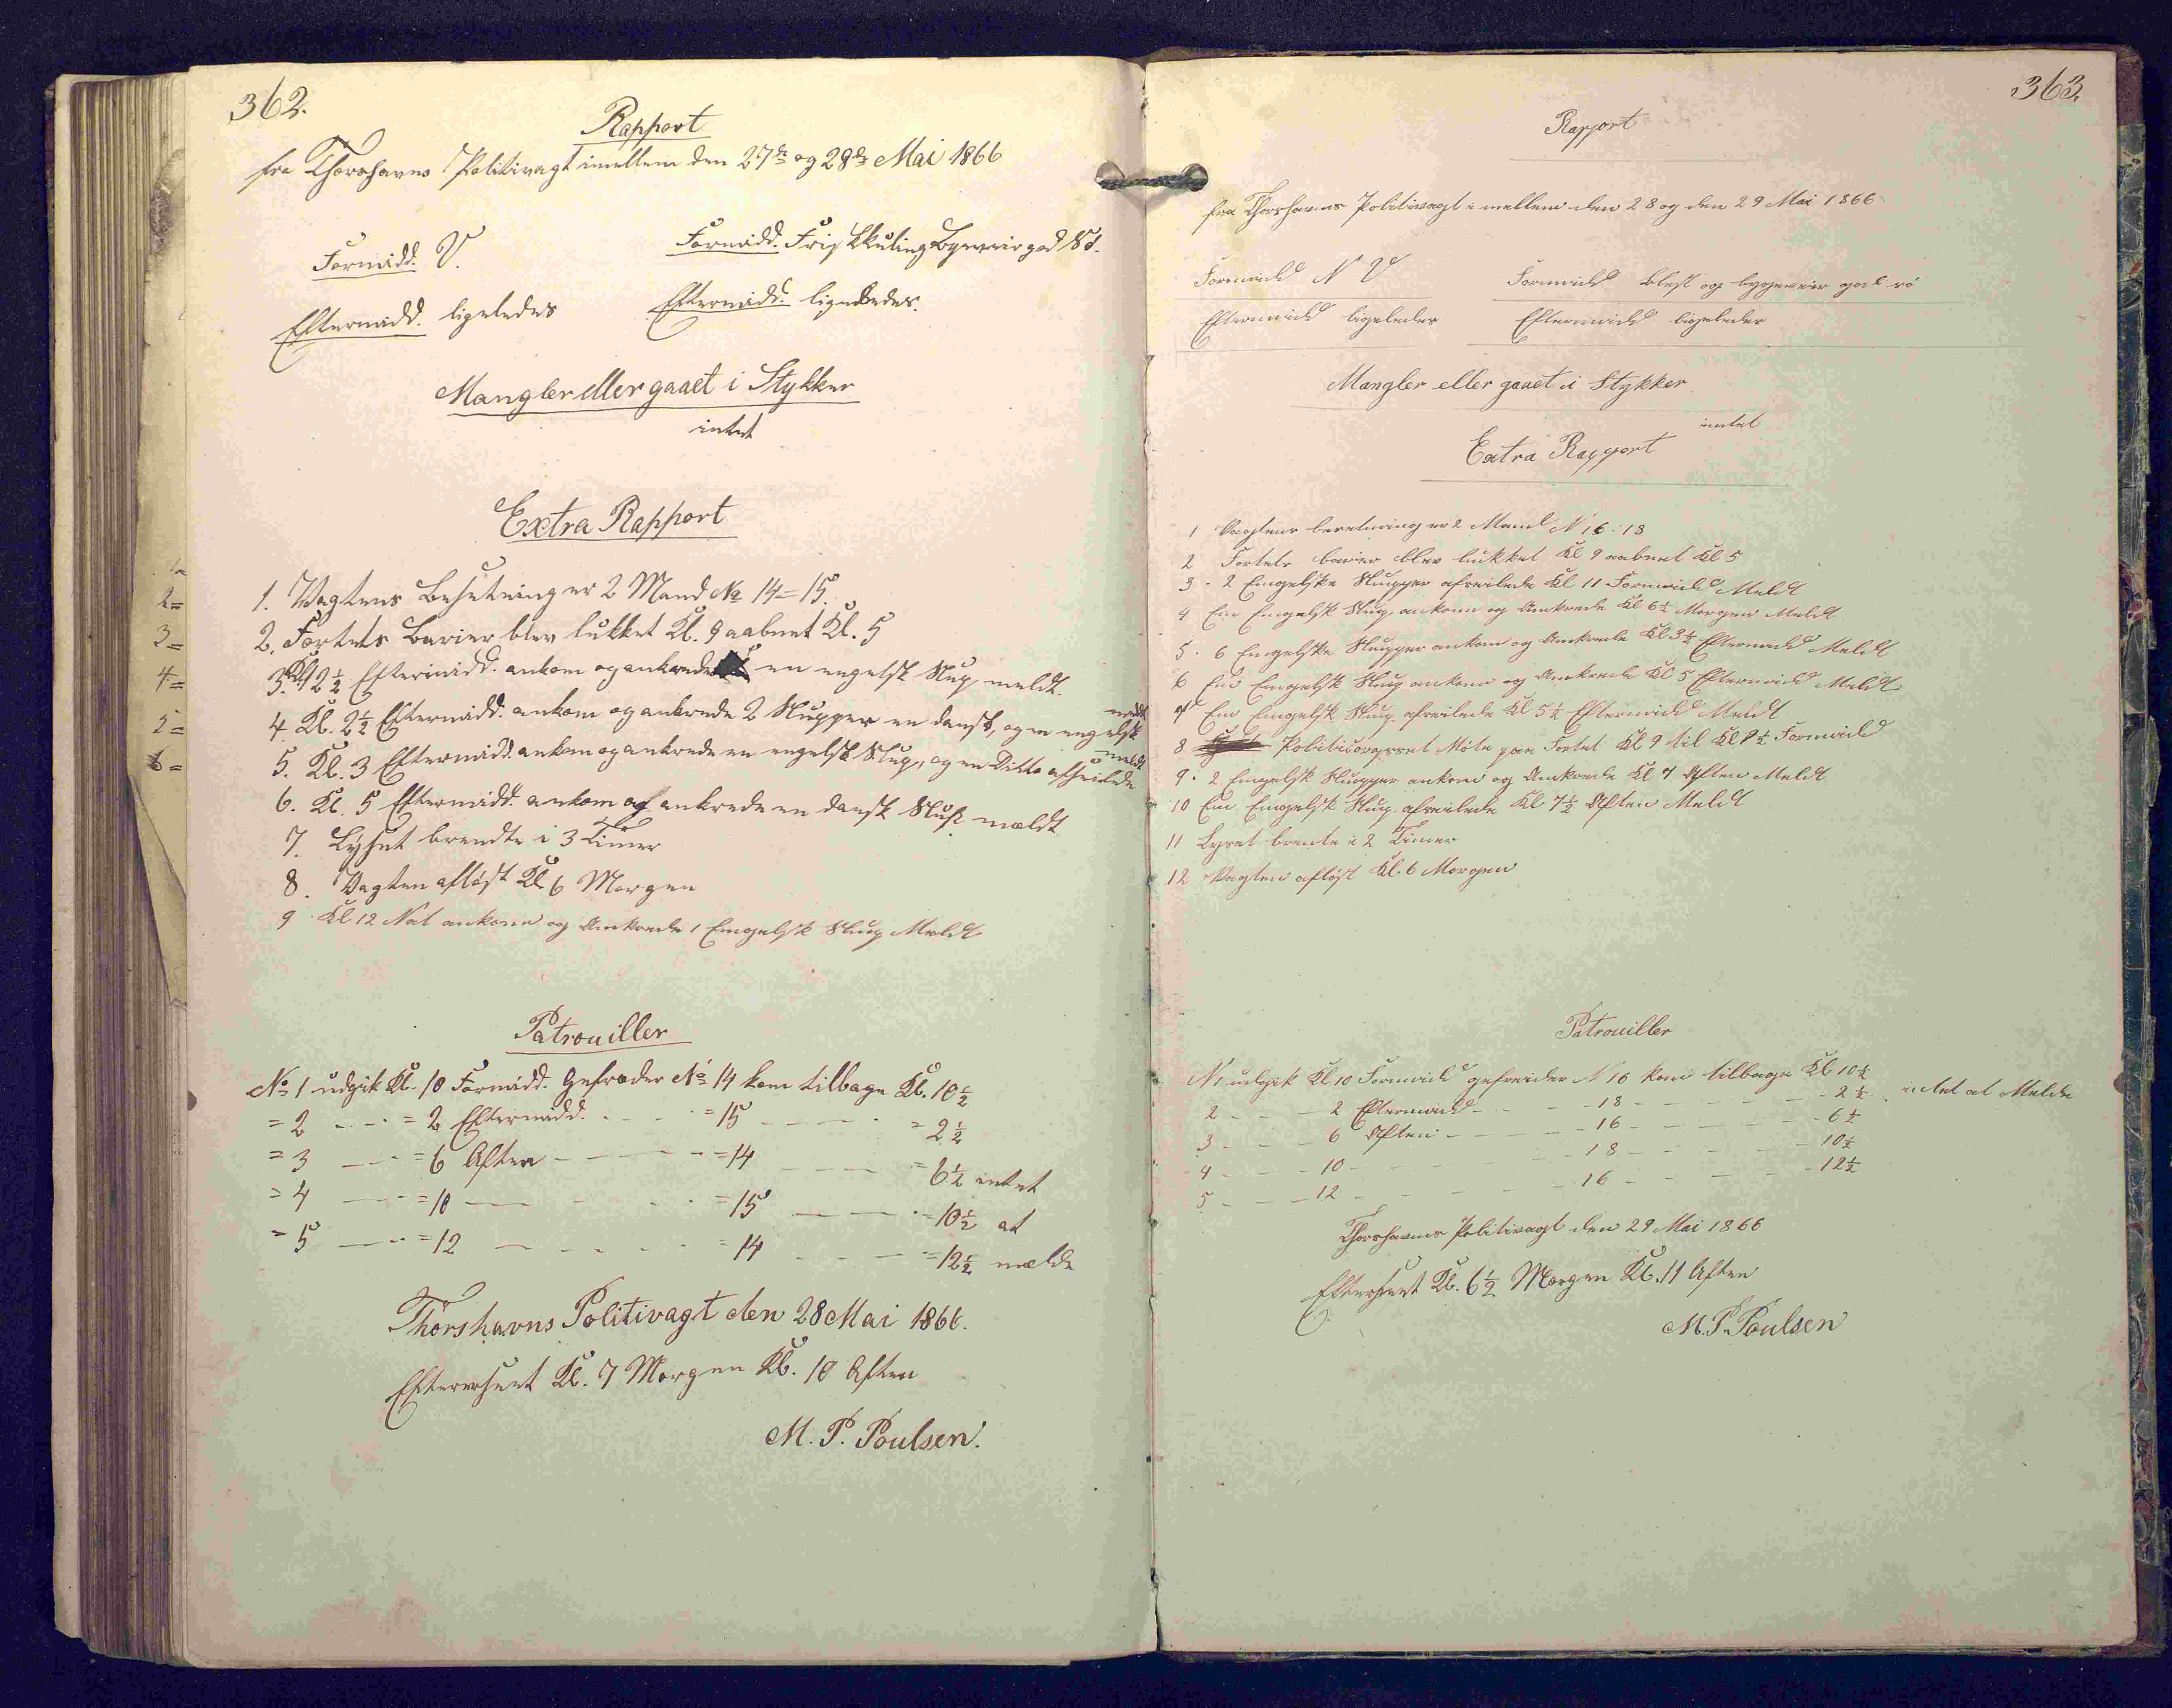 362.
Rapport
fra Thorshavns Politivagt imellem den 27de og 28de Mai 1866
Formidd. V. Formidd. Frisk Kuling Bygeveir god Rd.
Eftermidd. ligeledes Eftermidd. ligeledes.
Mangler eller gaaet i Stykker
intet
Extra Rapport
1. Vagtens Besetning er 2 Mand No 14 = 15.
2. Fortets Barier blev lukket Kl. 9 aabnet Kl. 5
3. Kl. 12½ Eftermidd. ankom og ankrede en engelsk Slup, meldt.
4. Kl. 2½ Eftermidd. ankom og ankrede 2 Slupper en dansk, og en engelsk meldt
5. Kl. 3 Eftermidd. ankom og ankrede en engelsk Slup, og en Ditto afseilede meldt
6. Kl. 5 Eftermidd. ankom og ankrede en dansk Slup mældt
7. Lyset brendte i 3 Timer
8. Vagten afløst Kl. 6 Morgen
9. Kl 12 Nat ankom og Ankrede 1 Engelsk Slup Meldt
Patrouiller
No 1 udgik Kl. 10 Formidd. Gefreder No 14 kom tilbage Kl. 10½
= 2 - - - = 2 Eftermidd. - - - = 15 - - - = 2½
= 3 - - - = 6 Aften - - - = 14 - - - = 6½ intet
= 4 - - - = 10 - - - = 15 - - - = 10½ at
= 5 - - - = 12 - - - = 14 - - - = 12½ mælde
Thorshavns Politivagt den 28 Mai 1866.
Efterseet Kl. 7 Morgen Kl. 10 Aften
M. P. Poulsen.
363.
Rapport
fra Thorshavns Politivagt i mellem den 28 og den 29 Mai 1866
Formidd N V Formidd blest og bygeveir god rd
Eftermidd ligeledes Eftermidd ligeledes
Mangler eller gaaet i Stykker
intet
Extra Rapport
1 Vagtens besetning er 2 Mand N 16 : 18
2 Fortets barier blev lukket Kl 9 aabnet Kl 5
3. 2 Engelske Slupper afseilede Kl 11 Formidd Meldt
4 Een Engelsk Slup ankom og Ankrede Kl 6½ Morgen Meldt
5. 6 Engelske Slupper ankom og Ankrede Kl 3½ Eftermidd Meldt
6 Een Engelsk Slup ankom og Ankrede Kl 5 Eftermidd Meldt
7 Een Engelsk Slup afseilede Kl 5½ Eftermidd Meldt
8 Politicorpset Møte paa Fortet Kl 9 til Kl 9½ Formidd
9. 2 Engelsk Slupper ankom og Ankrede Kl 7 Aften Meldt
10 Een Engelsk Slup afseilede Kl 7½ Aften Meldt
11 Lyset brente i 2 Timer
12 Vagten afløst Kl. 6 Morgen
Patrouiller
N 1 udgik Kl 10 Formidd gefreider N 16 kom tilbage Kl 10½
2 - - - 2 Eftermidd - - - 18 - - - 2½ intet at Melde
3 - - - 6 Aften - - - 16 - - - 6½
4 - - - 10 - - - 18 - - - 10½
5 - - - 12 - - - 16 - - - 12½
Thorshavns Politivagt den 29 Mai 1866
Efterseet Kl. 6½ Morgen Kl. 11 Aften
M. P. Poulsen
1=
2=
3=
4=
5=
6=